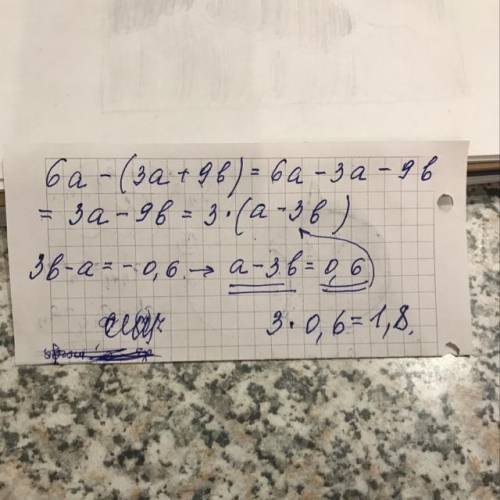 6a - (3a + 9b) = 6a - 3a - 9b
= 3a - 9b = 3·(a - 3b)
3b - a = -0,6. → a - 3b = 0,6
3·0,6 = 1,8.